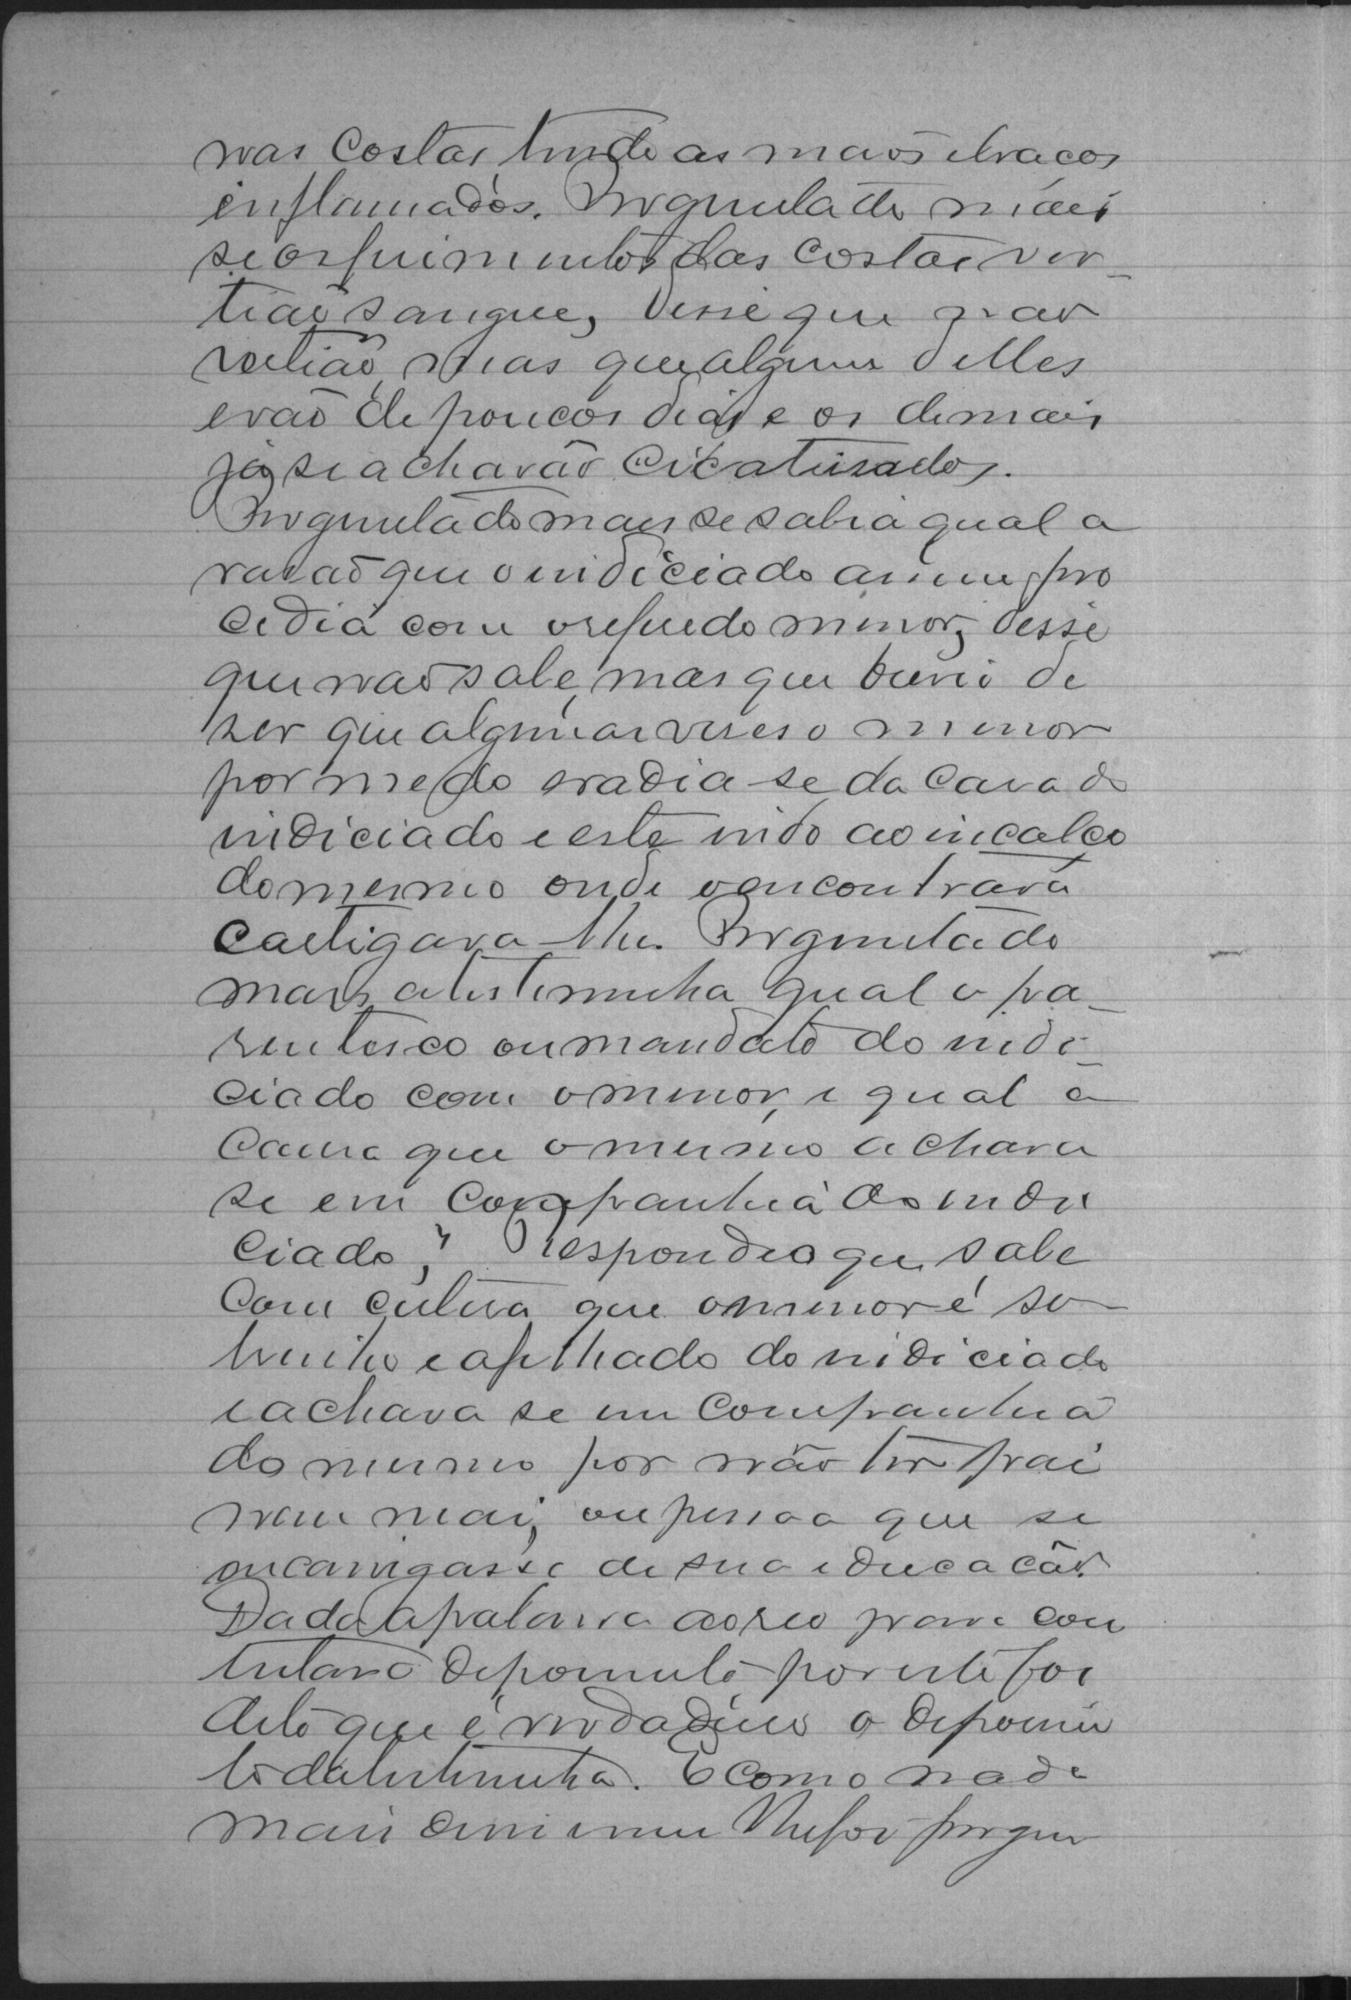 nas costas tendo as maõs e braços
inflamados. Perguntado mais
se os firimentos das costas ver-
tiaõ sangue, disse que naõ
vertiaõ, mas que alguns delles
eraõ de poucos dias e os demais
já se achavaõ cicatrisados.
Perguntado mais se sabia qual a
rasaõ que o indiciado assim pro
cedia com o referido menor, disse
que naõ sabe, mas que devia de
ser que algumas veses o menor
por medo evadia-se da casa do
indiciado e este indo ao incalço
do mesmo onde o encontrava
castigava-lhe. Perguntado
mais a testemunha qual o pa-
rentesco ou mandato do indi-
ciado com o menor, e qual a
causa que o mesmo achava
se em companhia do indi
ciado? Respondeo que sabe
com certesa que o menor é so
brinho e afilhado do indiciado
e achava se em companhia
do mesmo por não ter pai
nem mai, ou pessoa que se
encarrigasse de sua educacão.
Dada a palavra ao reo para con
testar o depoimento por este foi
dito que é verdadeiro o depoimen
to da testemunha. E como nada
mais disse e nem lhe foi pergun